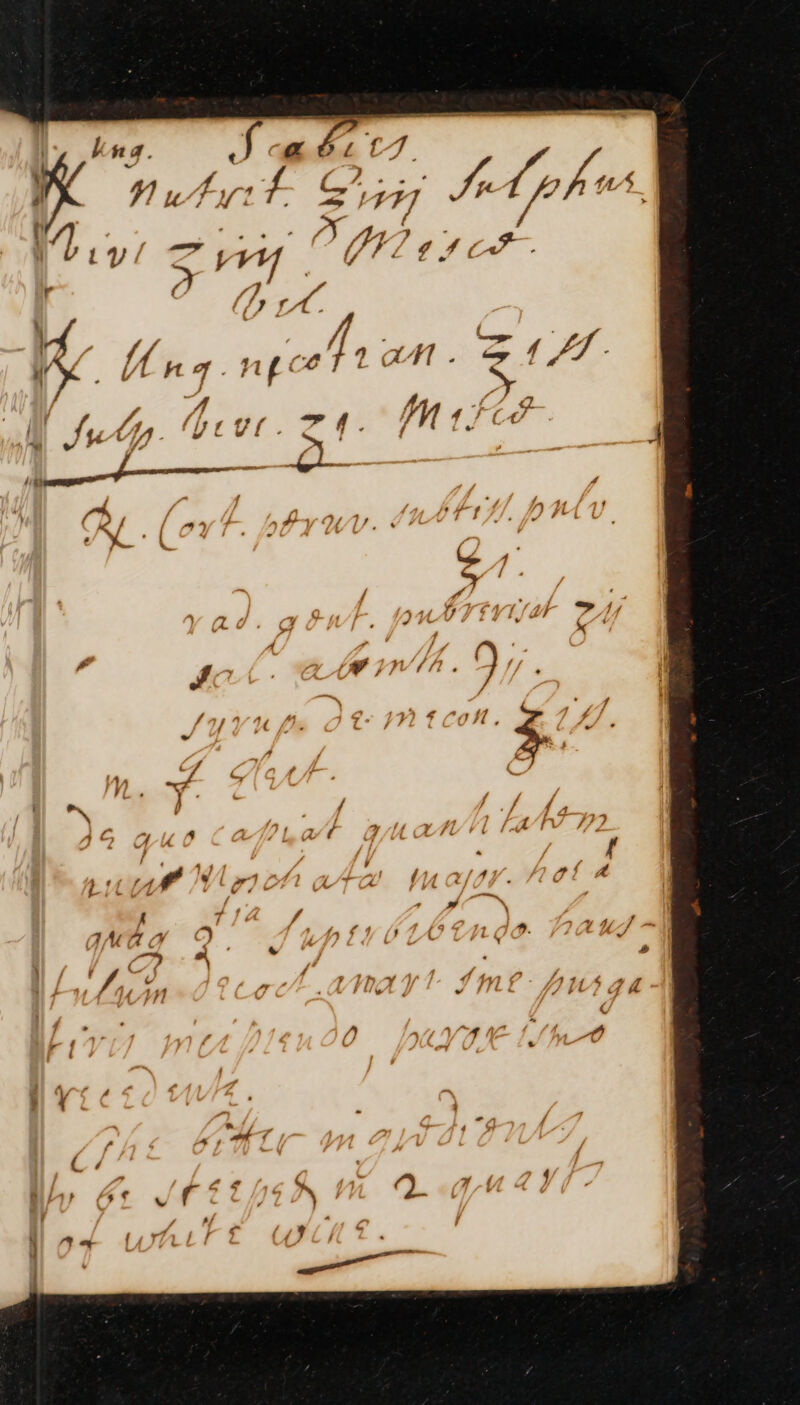 Ung. Scabiei
℞ Nutrit. ℥iiij Sulphur.
vivi ʒiiij Misce.
vel.
℞. Ung. nicotian. ℥iſſ.
Sulp. vivi. ʒi. Misce.
℞. Cort. peruv. subtiss. pulv.
℥i.
rad. gent. pulverisat ʒij
sal. absinth. ℈ij.
Syrup. de mecon. ℥iſſ.
m. f. Elect.
De quo capiat quantitatem
nucis Moschatae major. hor 4
quaq 3tia superbibendo haus-
tulum decoct. amari sine purga-
tivis incipiendo paroxismo
recedente.
The bitter ingredients
to be steeped in 2 quarts
of white wine.